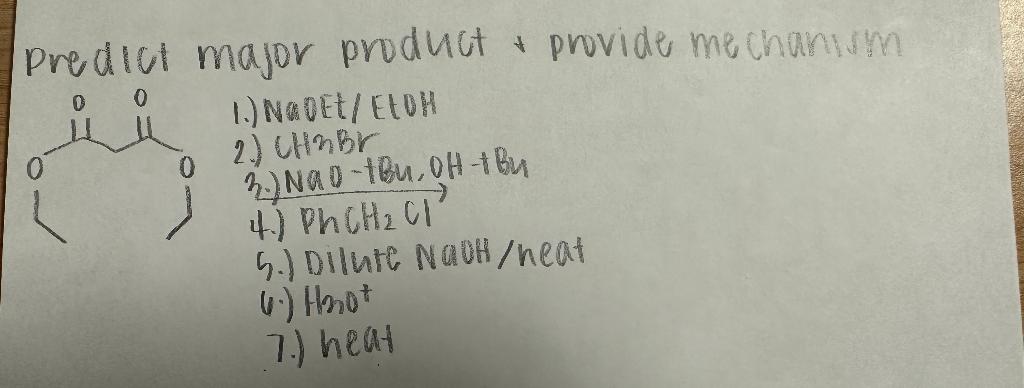 Predict major product & provide mechanism
O O
O O
1.) NaOEt/EtOH
2.) CH3Br
3.) NaO-tBu, OH-tBu
4.) PhCH2Cl
5.) Dilute NaOH/heat
6.) H3O+
7.) heat